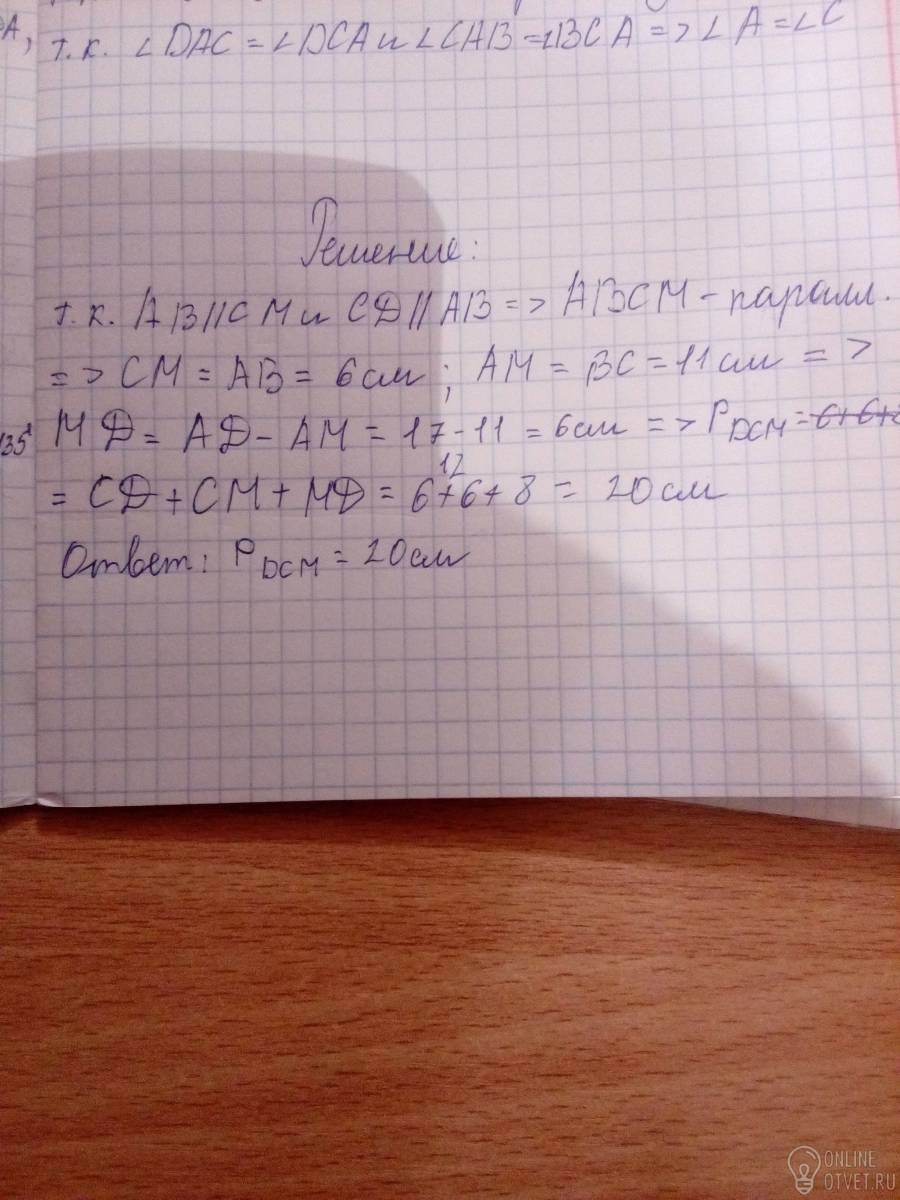 A,
т.к. ∠DAC = ∠DCA и ∠CAB = ∠BCA => ∠A = ∠C
Решение:
т.к. AB//CM и CD//AB => ABCM - паралл.
=> CM = AB = 6см; AM = BC = 11см =>
135°
MD = AD - AM = 17 - 11 = 6см => P DCM = 6+6+8
12
= CD + CM + MD = 6+6+8 = 20см
Ответ: P DCM = 20см
ONLINE
OTVET.RU